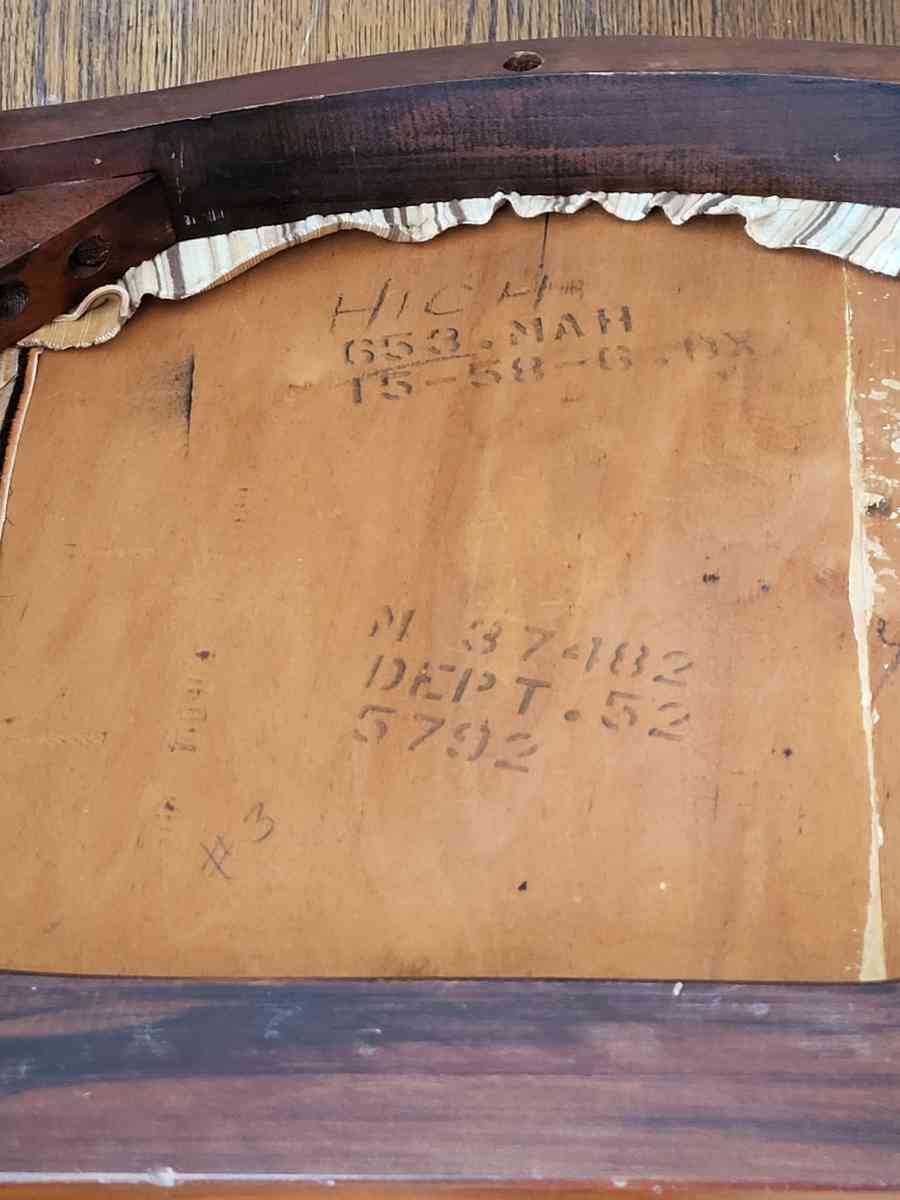 HICH
653.MAH
15-58-6.
M 37482
DEPT.52
5792
#3